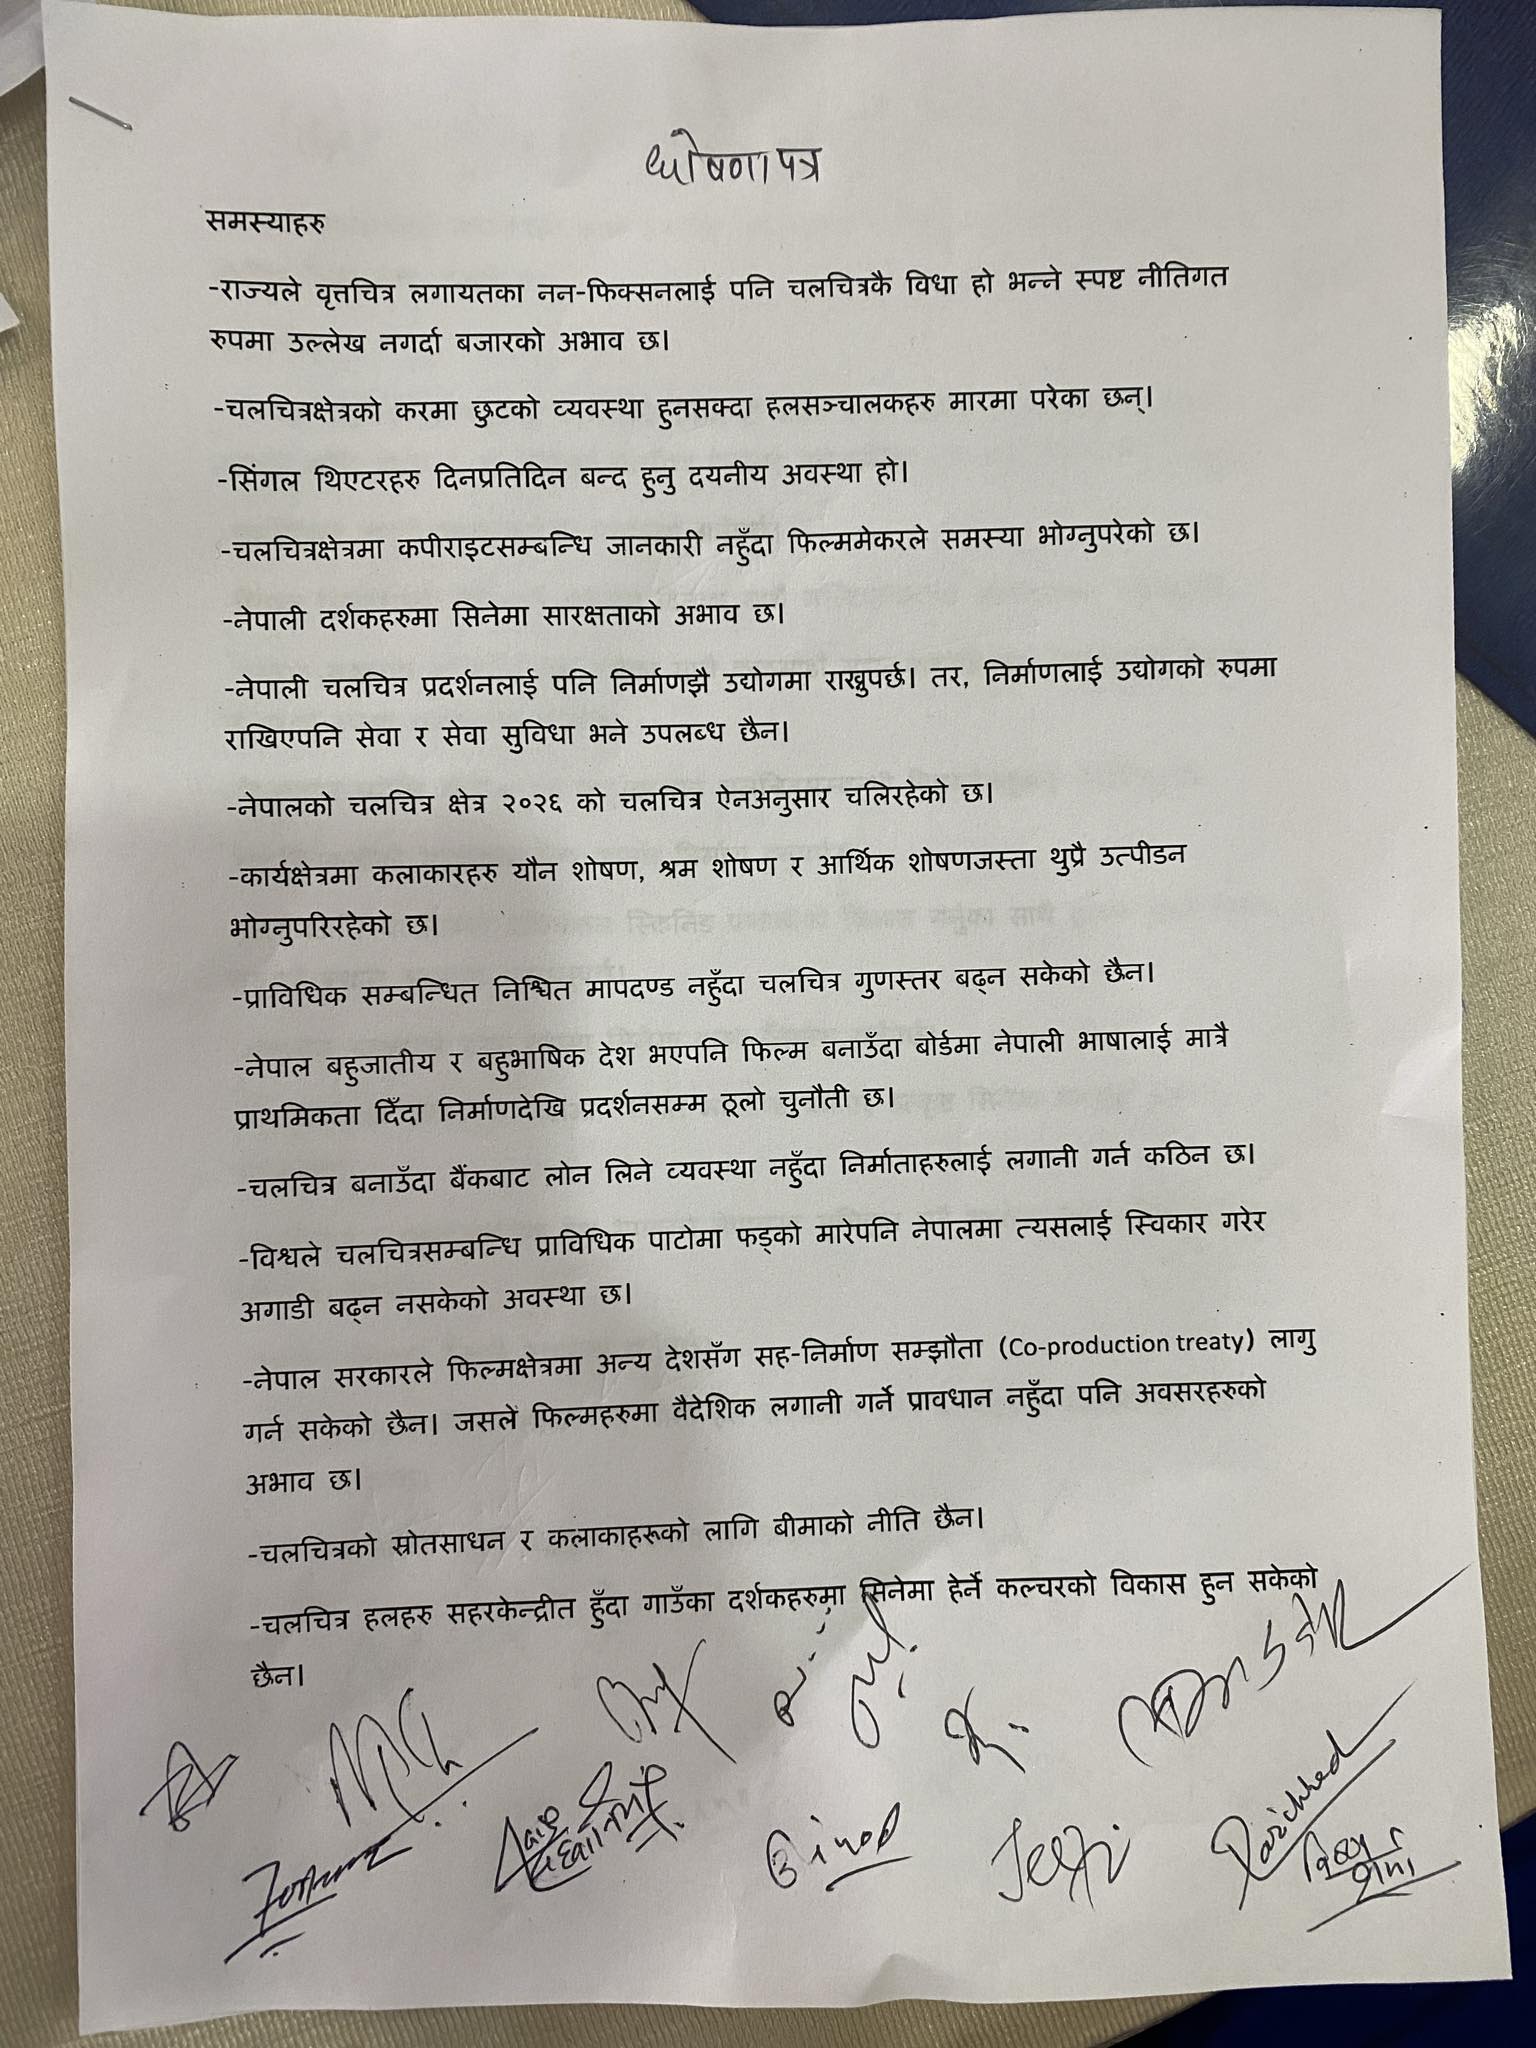 घोषणापत्र
समस्याहरु
-राज्यले वृत्तचित्र लगायतका नन-फिक्सनलाई पनि चलचित्रकै विधा हो भन्ने स्पष्ट नीतिगत
रुपमा उल्लेख नगर्दा बजारको अभाव छ।
-चलचित्रक्षेत्रको करमा छुटको व्यवस्था हुनसक्दा हलसञ्चालकहरु मारमा परेका छन्।
-सिंगल थिएटरहरु दिनप्रतिदिन बन्द हुनु दयनीय अवस्था हो।
-चलचित्रक्षेत्रमा कपीराइटसम्बन्धि जानकारी नहुँदा फिल्ममेकरले समस्या भोग्नुपरेको छ।
-नेपाली दर्शकहरुमा सिनेमा सारक्षताको अभाव छ।
-नेपाली चलचित्र प्रदर्शनलाई पनि निर्माणझै उद्योगमा राख्नुपर्छ। तर, निर्माणलाई उद्योगको रुपमा
राखिएपनि सेवा र सेवा सुविधा भने उपलब्ध छैन।
-नेपालको चलचित्र क्षेत्र २०२६ को चलचित्र ऐनअनुसार चलिरहेको छ।
-कार्यक्षेत्रमा कलाकारहरु यौन शोषण, श्रम शोषण र आर्थिक शोषणजस्ता थुप्रै उत्पीडन
भोग्नुपरिरहेको छ।
-प्राविधिक सम्बन्धित निश्चित मापदण्ड नहुँदा चलचित्र गुणस्तर बढ्न सकेको छैन।
-नेपाल बहुजातीय र बहुभाषिक देश भएपनि फिल्म बनाउँदा बोर्डमा नेपाली भाषालाई मात्रै
प्राथमिकता दिँदा निर्माणदेखि प्रदर्शनसम्म ठूलो चुनौती छ।
-चलचित्र बनाउँदा बैंकबाट लोन लिने व्यवस्था नहुँदा निर्माताहरुलाई लगानी गर्न कठिन छ।
-विश्वले चलचित्रसम्बन्धि प्राविधिक पाटोमा फड्को मारेपनि नेपालमा त्यसलाई स्विकार गरेर
अगाडी बढ्न नसकेको अवस्था छ।
-नेपाल सरकारले फिल्मक्षेत्रमा अन्य देशसँग सह-निर्माण सम्झौता (Co-production treaty) लागु
गर्न सकेको छैन। जसले फिल्महरुमा वैदेशिक लगानी गर्ने प्रावधान नहुँदा पनि अवसरहरुको
अभाव छ।
-चलचित्रको स्रोतसाधन र कलाकाहरूको लागि बीमाको नीति छैन।
-चलचित्र हलहरु सहरकेन्द्रीत हुँदा गाउँका दर्शकहरुमा सिनेमा हेर्ने कल्चरको विकास हुन सकेको
छैन।
Binod